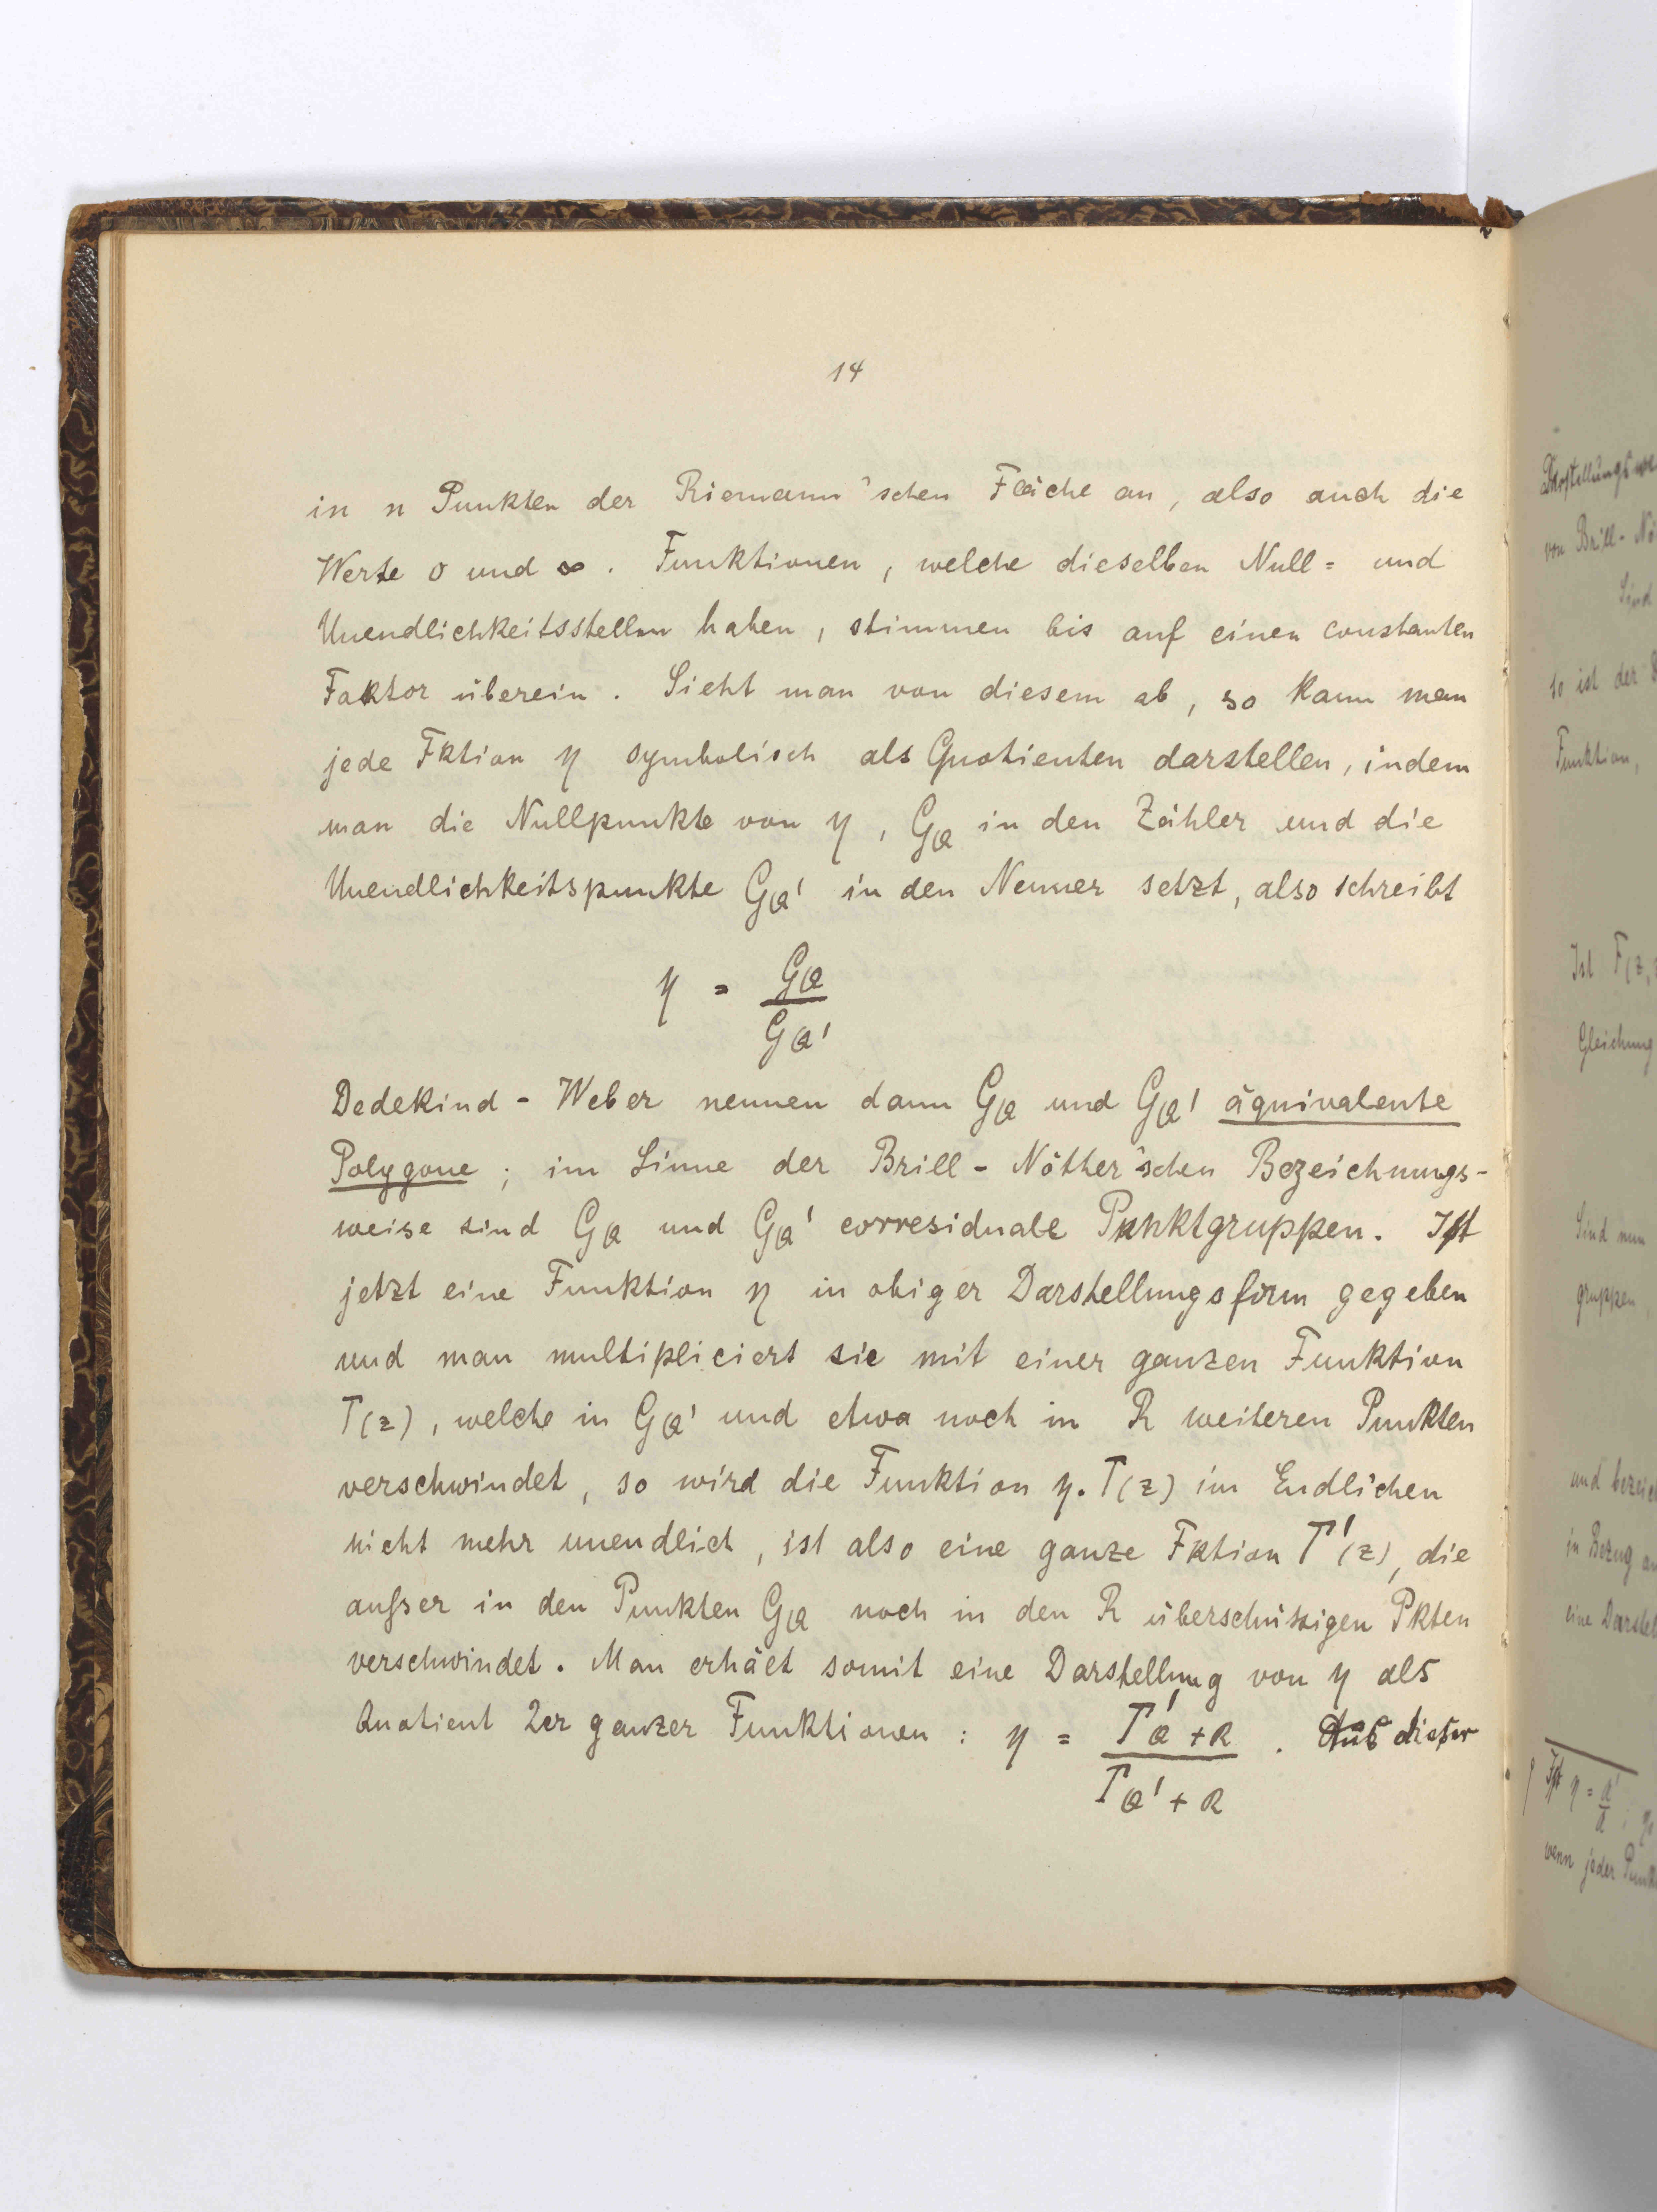 14
in n Punkten der Riemann'schen Fläche an, also auch die
Werte 0 und ∞. Funktionen, welche dieselben Null= und
Unendlichkeitsstellen haben, stimmen bis auf einen constanten
Faktor überein. Sieht man von diesem ab, so kann man
jede Fktion η symbolisch als Quotienten darstellen, indem
man die Nullpunkte von η, G_Q in den Zähler und die
Unendlichkeitspunkte G_Q' in den Nenner setzt, also schreibt
η = G_Q / G_Q'
Dedekind - Weber nennen dann G_Q und G_Q' äquivalente
Polygone; im Sinne der Brill - Nöther'schen Bezeichnungs-
weise sind G_Q und G_Q' corresiduale Punktgruppen. Ist
jetzt eine Funktion η in obiger Darstellungsform gegeben
und man multipliciert sie mit einer ganzen Funktion
Γ(z), welche in G_Q' und etwa noch in R weiteren Punkten
verschwindet, so wird die Funktion η.Γ(z) im Endlichen
nicht mehr unendlich, ist also eine ganze Fktion Γ'(z), die
außer in den Punkten G_Q noch in den R überschüssigen Pkten
verschwindet. Man erhält somit eine Darstellung von η als
Quotient 2er ganzer Funktionen: η = Γ'_Q+R / Γ_Q'+R . Aus dieser
Darstellungswe
von Brill - Nö
Sind
so ist der
Funktion,
Ist F(z,
Gleichung
Sind nun
gruppen
und bezeich
in Bezug an
eine Darstel
Ist η =
wenn jeder Punk